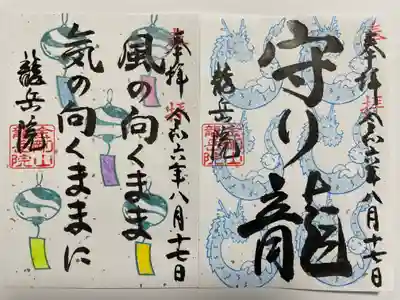 奉拝 令和六年八月十七日
守り龍
龍岳院
奉拝 令和六年八月十七日
風の向くまま
気の向くままに
龍岳院